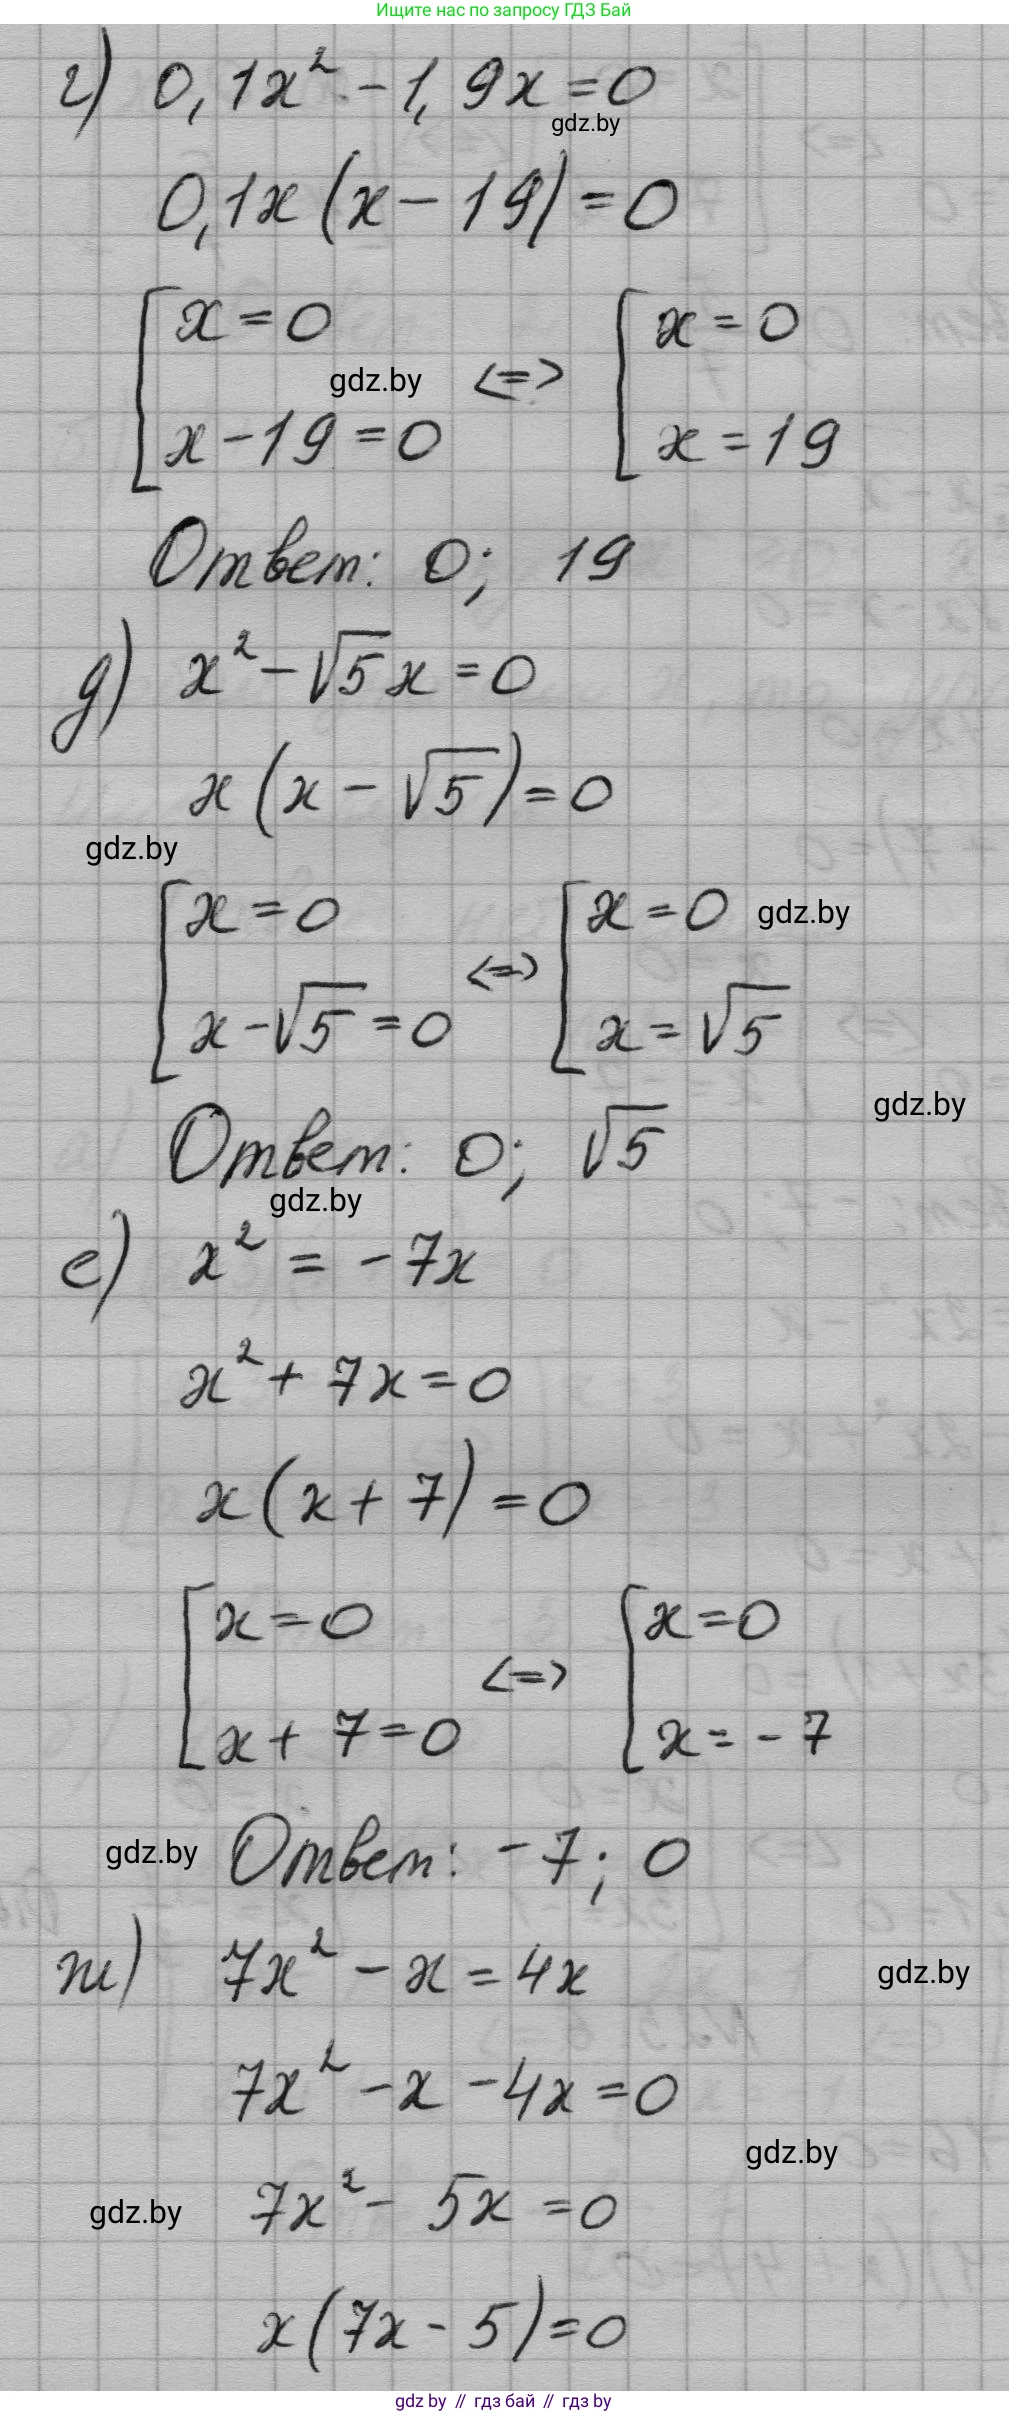 Ищите нас по запросу ГДЗ Бай
г) 0,1x² - 1,9x = 0
gdz.by
0,1x (x - 19) = 0
[ x = 0 <=> [ x = 0
gdz.by
x - 19 = 0 x = 19
Ответ: 0; 19
д) x² - √5x = 0
x (x - √5) = 0
gdz.by
[ x = 0 <=> [ x = 0 gdz.by
x - √5 = 0 x = √5
gdz.by
Ответ: 0; √5
gdz.by
е) x² = -7x
x² + 7x = 0
x (x + 7) = 0
[ x = 0 <=> [ x = 0
x + 7 = 0 x = -7
gdz.by Ответ: -7; 0
ж) 7x² - x = 4x gdz.by
7x² - x - 4x = 0
gdz.by
gdz.by 7x² - 5x = 0
x (7x - 5) = 0
gdz by // гдз бай // гдз by